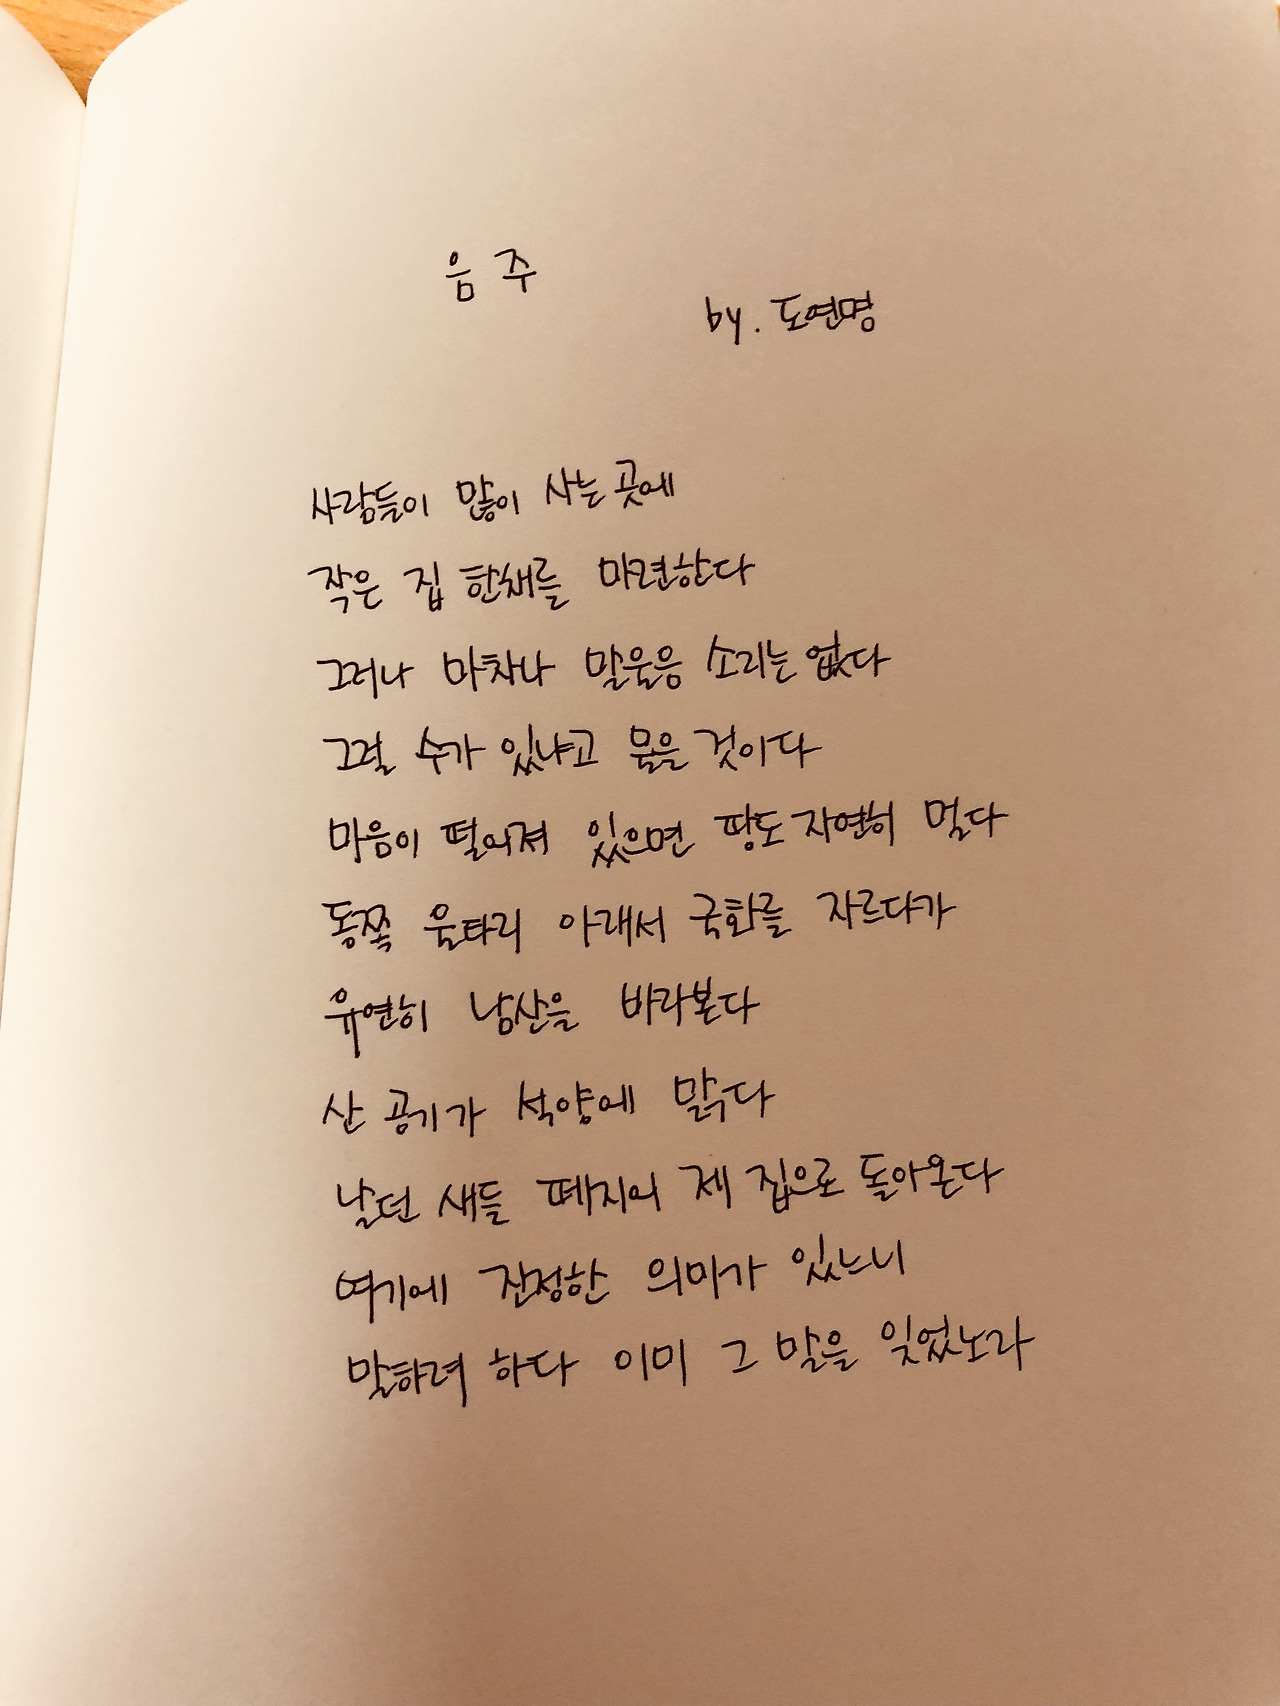 음주
by. 도연명
사람들이 많이 사는 곳에
작은 집 한채를 마련한다
그러나 마차나 말울음 소리는 없다
그럴 수가 있냐고 물을 것이다
마음이 떨어져 있으면 땅도 자연히 멀다
동쪽 울타리 아래서 국화를 자르다가
유연히 남산을 바라본다
산 공기가 석양에 맑다
날던 새들 떼지어 제 집으로 돌아온다
여기에 진정한 의미가 있느니
말하려 하다 이미 그 말을 잊었노라